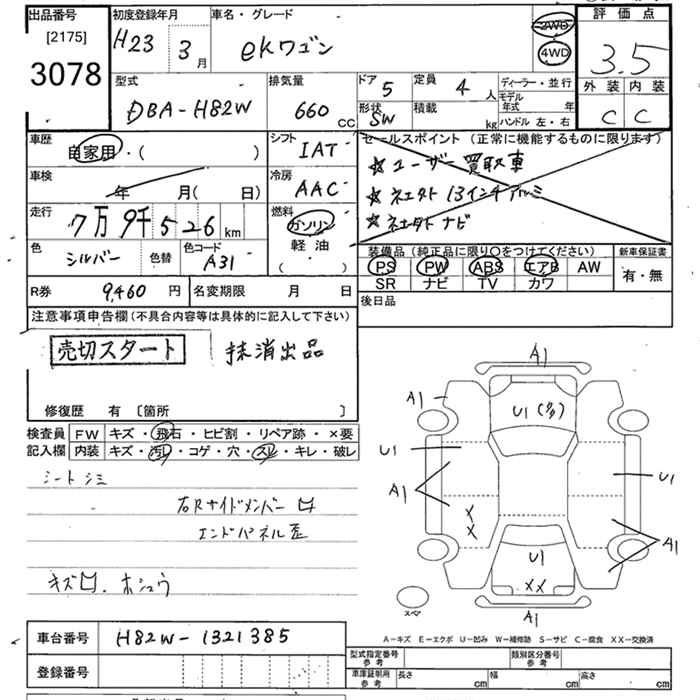 出品番号
[2175]
3078
初度登録年月
H23 3月
車名・グレード
ekワゴン
2WD
4WD
評価点
3.5
外装 内装
C C
型式
DBA-H82W
排気量
660 CC
ドア 5
定員 4人
形状 SW
積載 kg
ディーラー・並行
モデル年式 年
ハンドル 左・右
車歴
自家用・( )
シフト
IAT
セールスポイント (正常に機能するものに限ります)
☆ ユーザー買取車
☆ ネエタト 13インチアルミ
☆ ネエタト ナビ
車検
年 月( 日)
冷房
AAC
走行
7万9千526km
燃料
ガソリン
軽油
( )
色
シルバー
色替
色コード
A31
装備品 (純正品に限り○をつけてください)
PS PW ABS エアB AW
SR ナビ TV カワ
新車保証書
有・無
R券 9,460 円
名変期限 月 日
後日品
注意事項申告欄 (不具合内容等は具体的に記入して下さい)
売切スタート 抹消出品
修復歴 有 〔箇所 〕
検査員記入欄
FW キズ・飛石・ヒビ割・リペア跡・×要
内装 キズ・汚レ・コゲ・穴・スレ・キレ・破レ
シートシミ
右Rサイドメンバー凹
エンドパネル歪
キズ凹、ホシュウ
A1
A1
U1(多)
U1
U1
A1
××
A1
U1
××
A1
スペア
A-キズ E-エクボ U-凹み W-補修跡 S-サビ C-腐食 XX-交換済
車台番号 H82W-1321385
登録番号
型式指定番号 参考
類別区分番号 参考
車庫証明用 参考
長さ cm 幅 cm 高さ cm